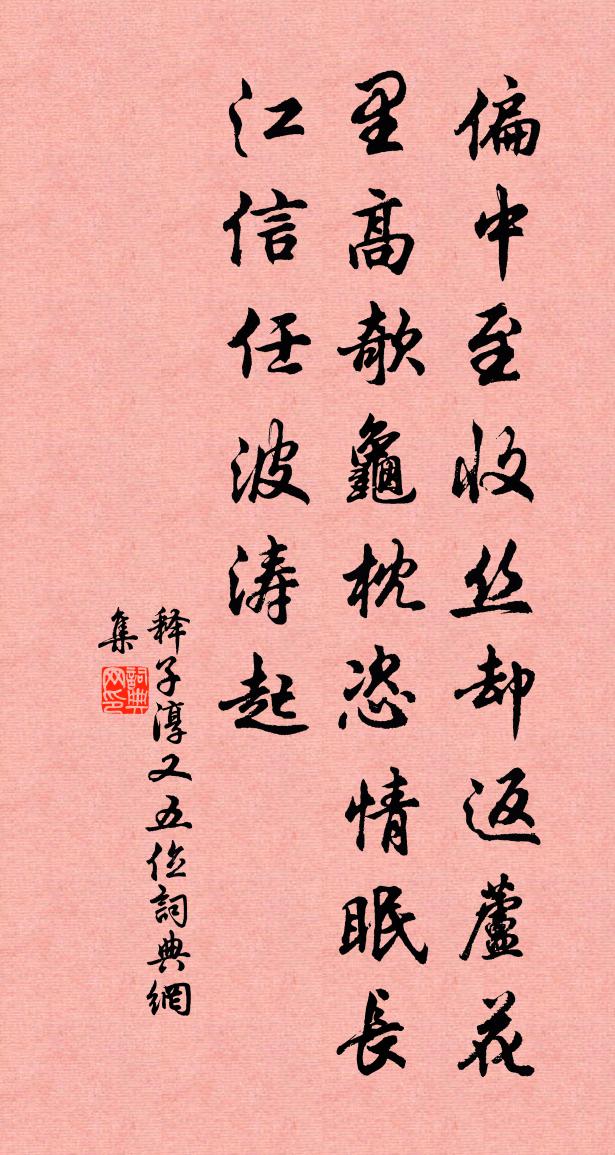 偏中至收丝却返蘆花
里高欹龜枕恣情眠長
江信任波涛起
释子淳又五位詞典網
集
詞典网印